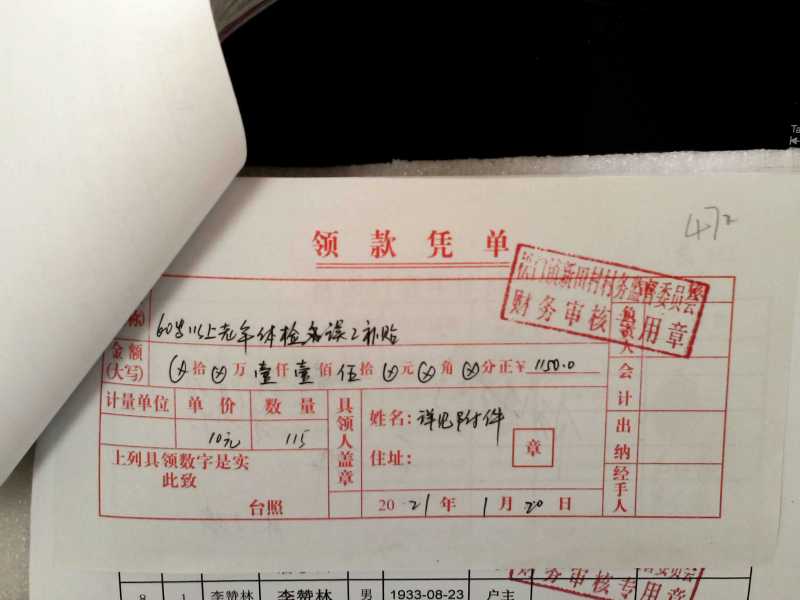 472
领款凭单
松门镇新田村村务监督委员会
财务审核专用章
称)
60岁以上老年体检名误工补贴
金额(大写) ⊗拾⊗万壹仟壹佰伍拾⊗元⊗角⊗分正¥ 1150.0
计量单位 单价 数量
10元 115
具领人盖章
姓名:详见附件
住址: 章
上列具领数字是实
此致
台照
2021年1月20日
会计
出纳
经手人
财务审核专用章
8 1 李赞林 李赞林 男 1933-08-23 户主